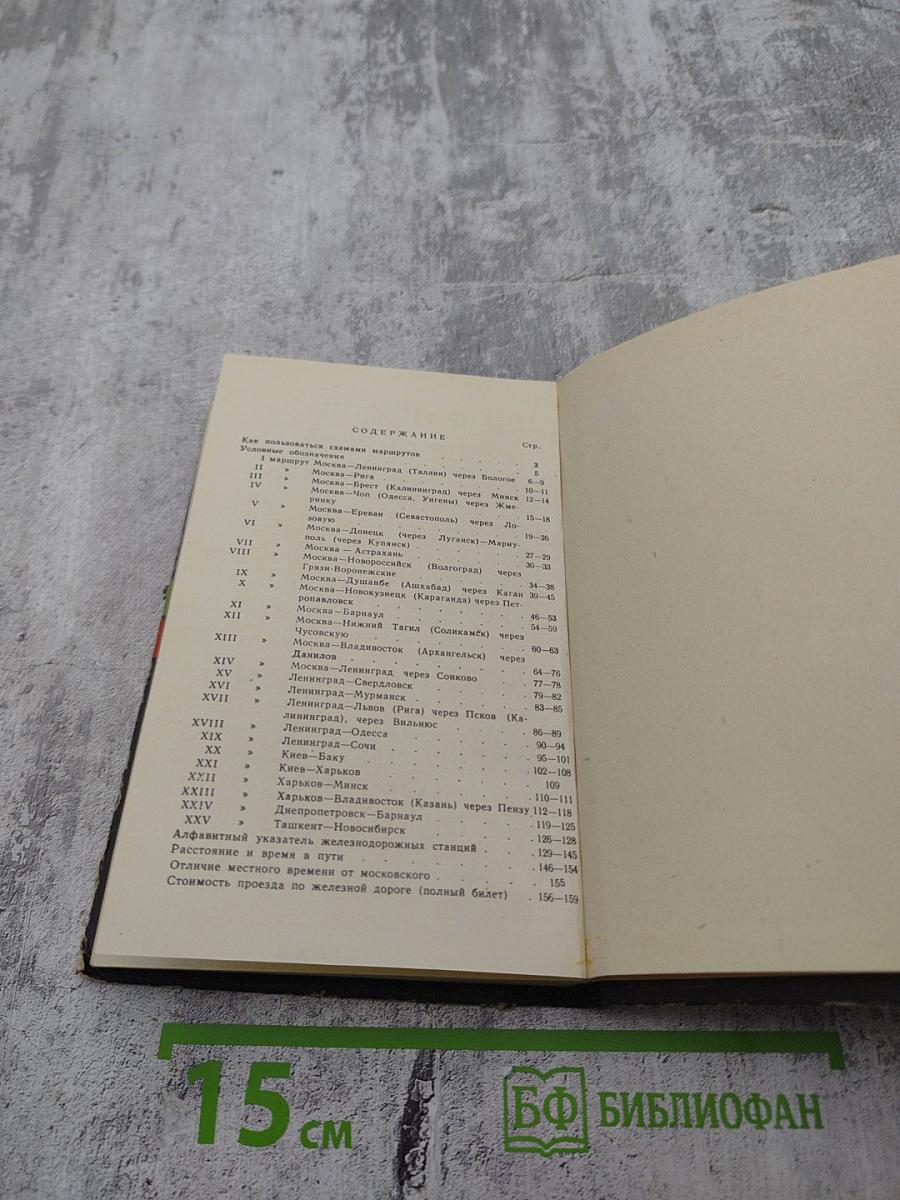 СОДЕРЖАНИЕ
Стр.
Как пользоваться схемами маршрутов . . . . . 3
Условные обозначения . . . . . 5
I маршрут Москва—Ленинград (Таллин) через Бологое 6—9
II » Москва—Рига . . . . . 10—11
III » Москва—Брест (Калининград) через Минск 12—14
IV » Москва—Чоп (Одесса, Унгены) через Жме-
ринку . . . . . 15—18
V » Москва—Ереван (Севастополь) через Ло-
зовую . . . . . 19—26
VI » Москва—Донецк (через Луганск)—Мариу-
поль (через Купянск) . . . . . 27—29
VII » Москва — Астрахань . . . . . 30—33
VIII » Москва—Новороссийск (Волгоград) через
Грязи-Воронежские . . . . . 34—38
IX » Москва—Душанбе (Ашхабад) через Каган 39—45
X » Москва—Новокузнецк (Караганда) через Пет-
ропавловск . . . . . 46—53
XI » Москва—Барнаул . . . . . 54—59
XII » Москва—Нижний Тагил (Соликамск) через
Чусовскую . . . . . 60—63
XIII » Москва—Владивосток (Архангельск) через
Данилов . . . . . 64—76
XIV » Москва—Ленинград через Сонково . . . 77—78
XV » Ленинград—Свердловск . . . . . 79—82
XVI » Ленинград—Мурманск . . . . . 83—85
XVII » Ленинград—Львов (Рига) через Псков (Ка-
лининград), через Вильнюс . . . . . 86—89
XVIII » Ленинград—Одесса . . . . . 90—94
XIX » Ленинград—Сочи . . . . . 95—101
XX » Киев—Баку . . . . . 102—108
XXI » Киев—Харьков . . . . . 109
XXII » Харьков—Минск . . . . . 110—111
XXIII » Харьков—Владивосток (Казань) через Пензу 112—118
XXIV » Днепропетровск—Барнаул . . . . . 119—125
XXV » Ташкент—Новосибирск . . . . . 126—128
Алфавитный указатель железнодорожных станций . . . 129—145
Расстояние и время в пути . . . . . 146—154
Отличие местного времени от московского . . . . . 155
Стоимость проезда по железной дороге (полный билет) . 156—159
15 см
БФ БИБЛИОФАН